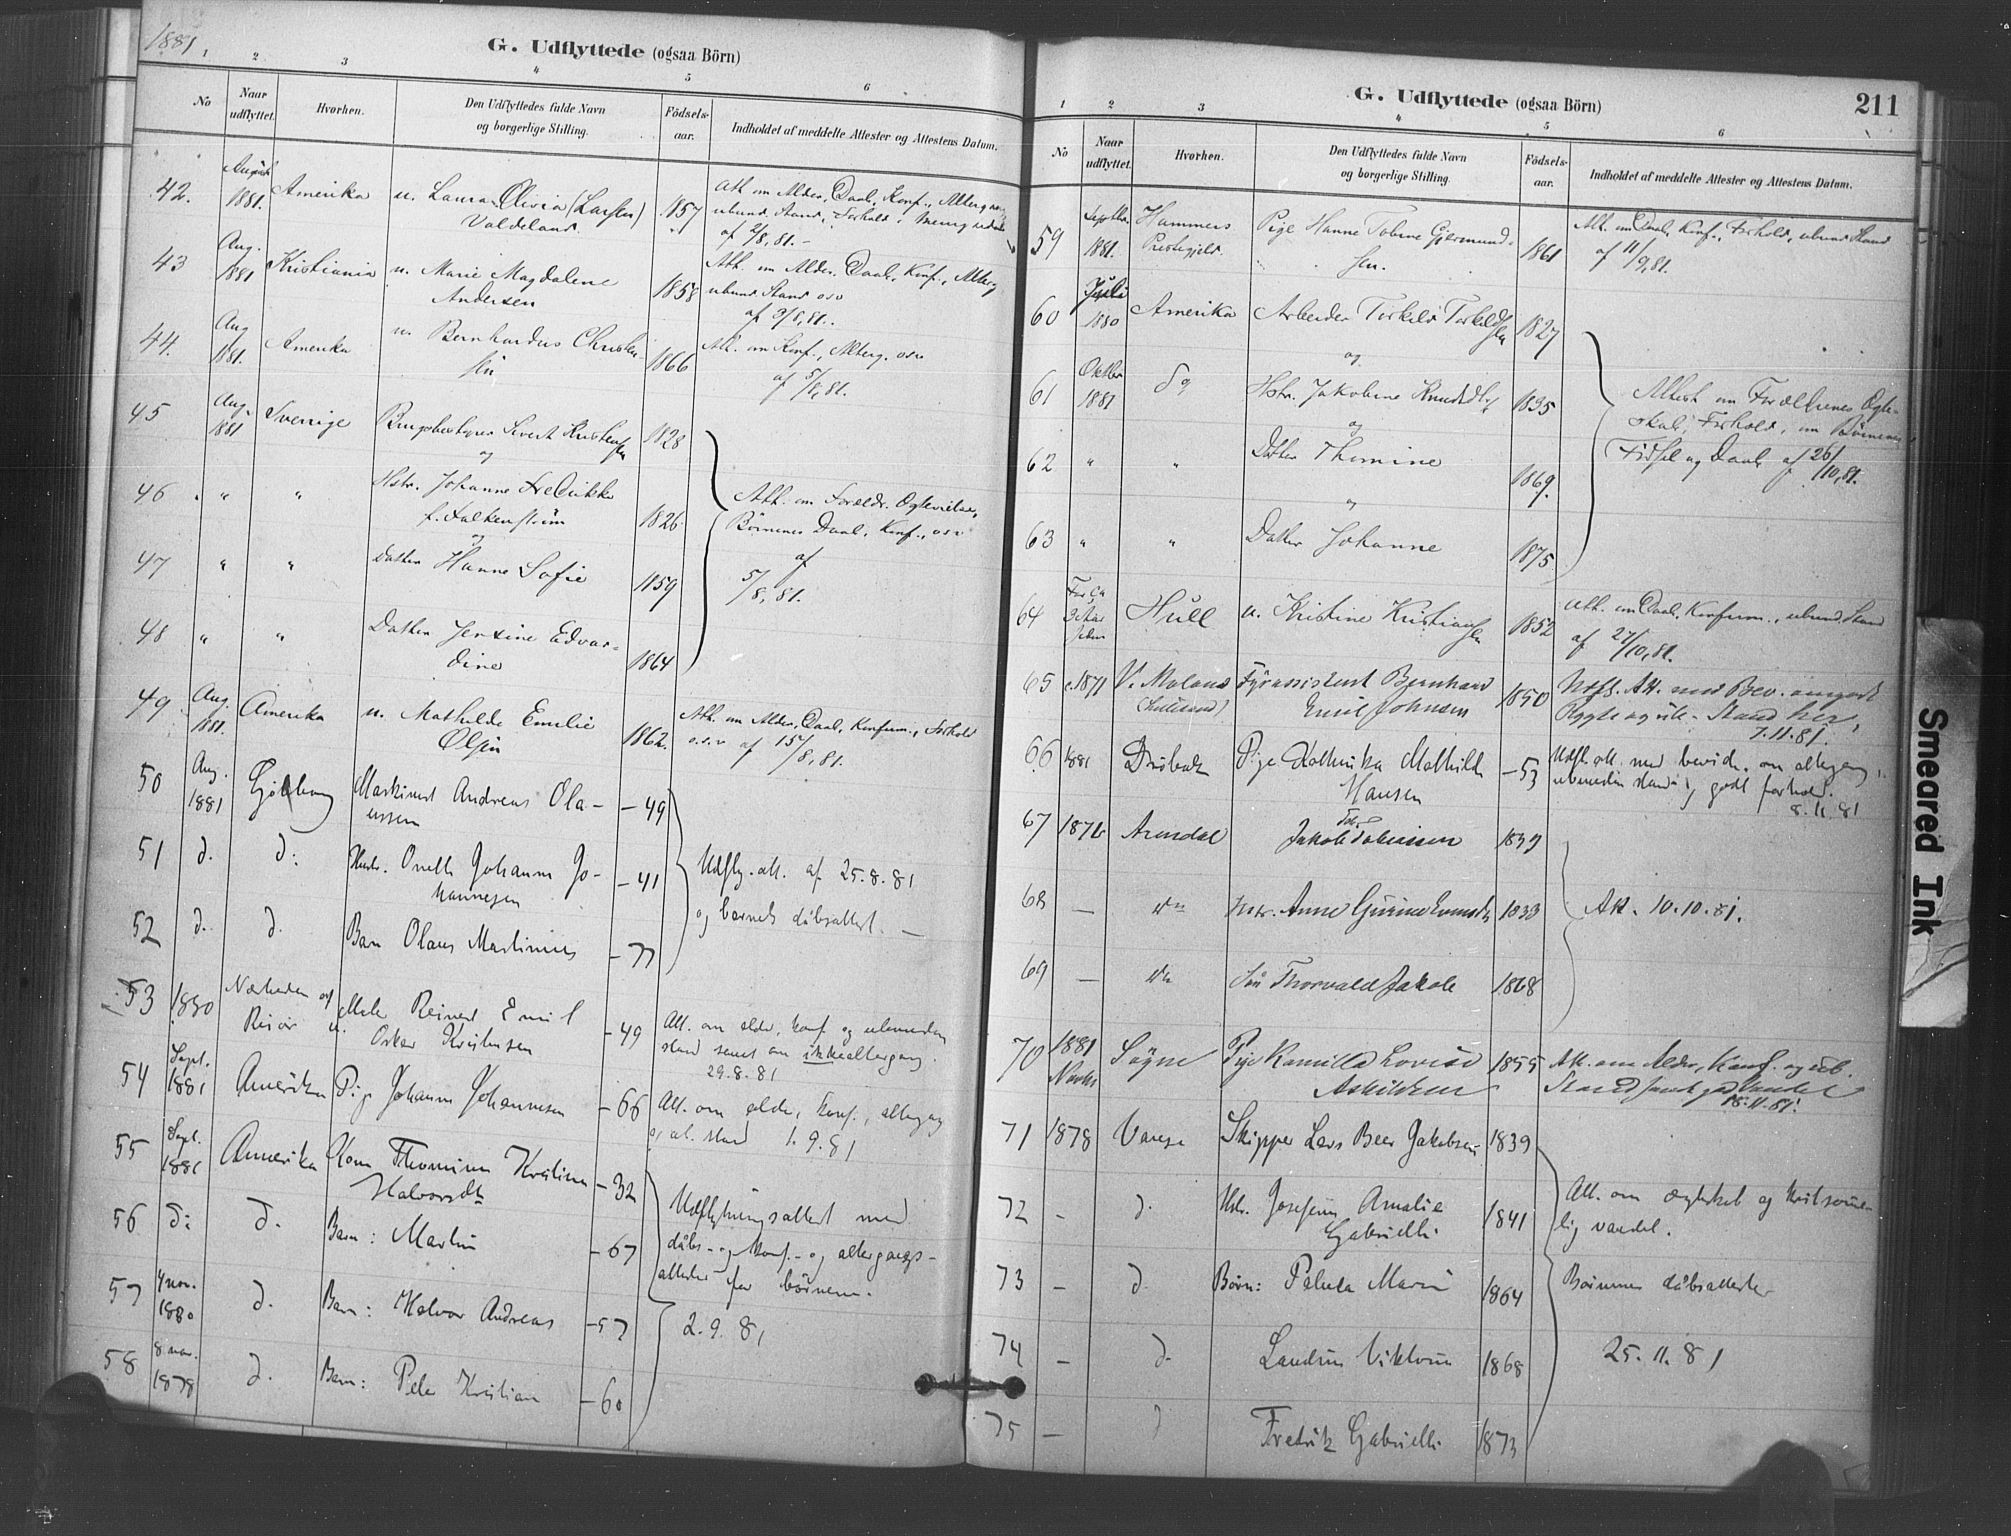 1881.
G. Udflyttede (ogsaa Börn)
1 2 3 4 5 6
No
Naar udflyttet.
Hvorhen.
Den Udflyttedes fulde Navn og borgerlige Stilling.
Födsels-aar.
Indholdet af meddelte Attester og Attestens Datum.
42. August 1881. Amerika u. Laura Olivia (Larsen) 1857 Att. om Alder, Daab, Konf., Alterg.
Valdeland ubund. Stand, Forhold
af 2/8,81.-
43 Aug. 1881 Kristiania u. Marie Magdalene 1858 Att. om Alder, Daab, Konf., Alterg
Andersen ubund Stand osv
af 3/8,81.
44. Aug 1881. Amerika u. Bernhardus Christen- 1866 Att. om Konf., Alterg. osv
sen af 5/8,81.
45 Aug. 1881 Sverrige Sivert Kristensen 1828
og
46 " " Hstr. Johanne Fredrikke Att. om Forældr.
f. Falkenstrøm 1826 Børnenes Daab, Konf., osv
og af
47 " " Datter Hanne Sofie 1859 5/8,81.
48 " " Datter Jensine Edvar-
dine 1864
49 Aug. 1881. Amerika u. Mathilde Emilie 1862. Att. om Alder, Daab, Konfirm., Forhold
Olsen o.s.v af 15/8,81.
50 Aug. 1881 Andreas Ola- – 49
ussen
51 d. d: Johanne Jo- – 41 Udfly.-att. af 25.8.81
hannesen og barnets dåbsattest. –
52 d. d. Barn Olaus Martinius – 77
53 1880 Nærheden af Reinert Emil
Risør Oskar Kristensen – 49 Att. om alder, konf. og ubunden
stand samt om ikke altergang.
29.8.81
54 Sept. 1881 Amerika Pige Johanne Johannesen – 66 Att. om alder, konf., altergang
og ub. stand 1.9.81
55 Sept. 1881 Amerika Kone Thomine Kristine – 32
Halvorsdtr Udflytningsattest med
56 d: d. Barn: Martin – 67 dåbs- og konf.- og altergangs-
attester for børnene.
57 4 nov. 1880 d. Barn: Halvor Andreas – 57 2.9.81
58 8 nov. 1878 d. Barn: Peder Kristian – 60
G. Udflyttede (ogsaa Börn)
211
1 2 3 4 5 6
No
Naar udflyttet.
Hvorhen.
Den Udflyttedes fulde Navn og borgerlige Stilling.
Födsels-aar.
Indholdet af meddelte Attester og Attestens Datum.
59 Septbr. 1881. Hammers Pige Hanne Tobine Gjermund- 1861 Att. om Daab, Konf., Forhold, ubund Stand
Prestegjeld. sen. af 11/9,81.
60 Juli 1880 Amerika Arbeider Torkild Torkildsen 1827
og
61 Oktbr 1881 do Hstr. Jakobine Knudsdtr 1835 Attest om Forældrenes Ægte-
og skab, Forhold, om Børnenes
62 " " Datter Thomine 1869. Fødsel og Daab af 26/10,81.
"
63 " " Datter Johanne 1875
64 For ca 3 Aar siden Hull u. Kristine Kristiansen 1852 Att. om Daab, Konfirm., ubund. Stand
af 27/10,81.
65 c.1871 V. Moland Fyrassistent Bernhard 1850
Emil Johnsen Stand her,
7.11.81.
66 1881 Drøbak Pige Mathilde – 53 Udfl. att. med bevidn. om altergang,
Hansen ubunden stand og godt forhold.
8.11.81
67 1876 Arendal Jakob Tobiassen 1839
68 — do Hstr. Anne 1833 Att. 10.10.81.
69 — do Søn Thorvald Jakob 1868
70 1881 Novbr Søgne Pige Kamilla Lovise 1855 Att. om Alder, Konf. og ub.
Askildsen Stand samt god Vandel
18.11.81.
71 1878 Vanse Skipper Lars Beer Jakobsen 1839
72 – d. Hstr. Josefine Amalie 1841 Att. om ægteskab og
Gabrielle lig vandel.
73 – d. Børn: Marie 1864 Børnenes dåbsattester
74 – d. Viktoria 1868 25.11.81
75 – d Fredrik Gabrielle 1873
Smeared Ink